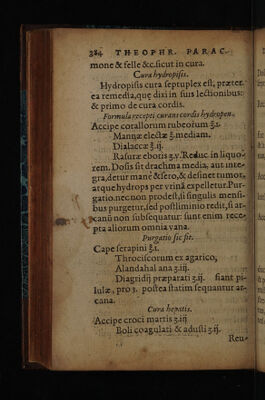 384 THEOPHR. PARAC.
mone & felle &c. sicut in cura.
Cura hydropisis.
Hydropisis cura septuplex est, præter
ea remedia, quę dixi in suis lectionibus:
& primo de cura cordis.
Formula recepti curans cordis hydropen.
Accipe corallorum rubeorum ℥.1.
Mannæ electæ ℥. mediam.
Dialaccæ ℥.ij.
Rasuræ eboris ʒ.v. Reduc in liquo-
rem. Dosis sit drachma media, aut inte-
gra, detur manè & serò, & desinet tumor,
atque hydrops per vrinā expelletur. Pur-
gatio nec non prodest, si singulis mensi-
bus purgetur, sed postliminio redit, si ar-
canū non subsequatur: sunt enim rece-
pta aliorum omnia vana.
Purgatio sic fit.
Cape serapini ℥.1.
Throciscorum ex agarico,
Alandahal ana ʒ.iij.
Diagridij præparati ʒ.ij. fiant pi-
lulæ, pro ʒ. postea statim sequantur ar-
cana.
Cura hepatis.
Accipe croci martis ʒ.iij
Boli coagulati & adusti ʒ.ij.
Reu-